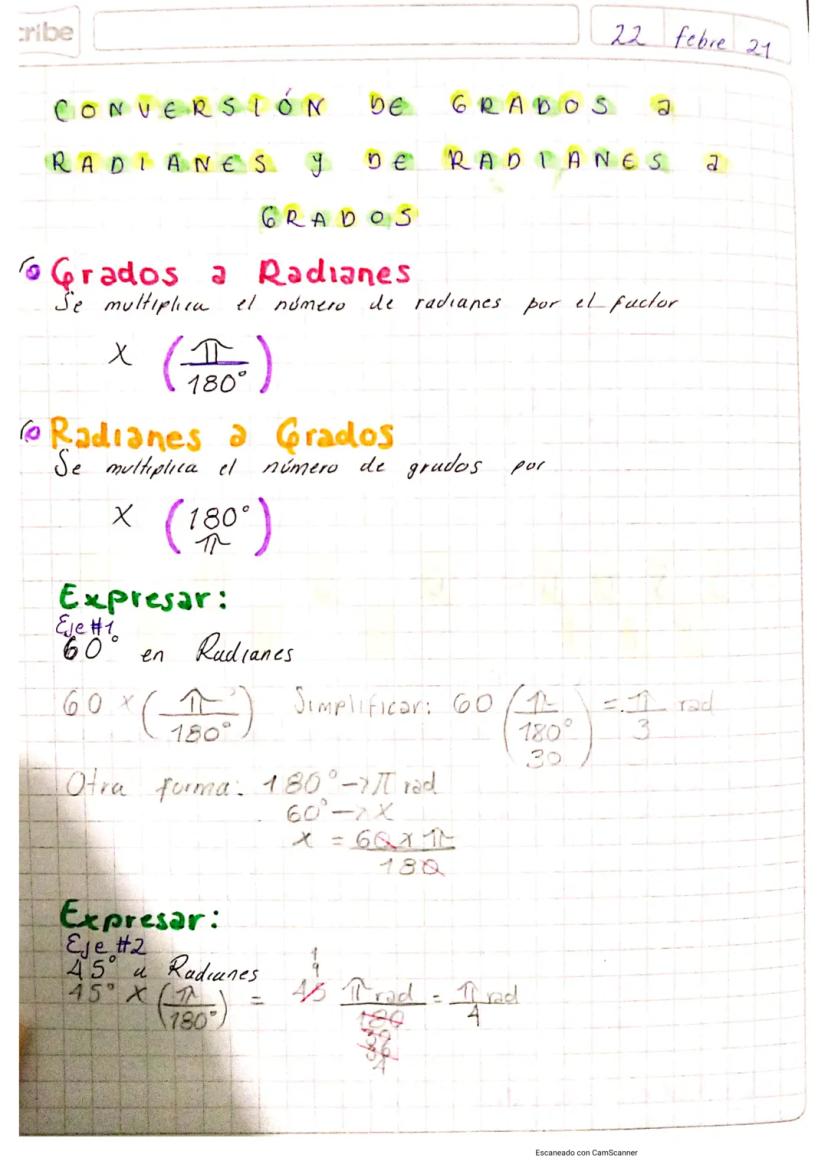 cribe
22 febre 21
CONVERSIÓN DE GRADOS a
RADIANES y DE RADIANES a
GRADOS
Grados a Radianes
Se multiplica el número de radianes por el factor
X (π/180°)
Radianes a Grados
Se multiplica el número de grados por
X (180°/π)
Expresar:
Eje #1
60° en Radianes
60 x (π/180°) Simplificar: 60 (π/180° 30) = π/3 rad
Otra forma: 180° -> π rad
60° -> X
x = 60 x π
180
Expresar:
Eje #2
45° a Radianes
45° X (π/180°) = 45 π rad/180 = π/4 rad
Escaneado con CamScanner